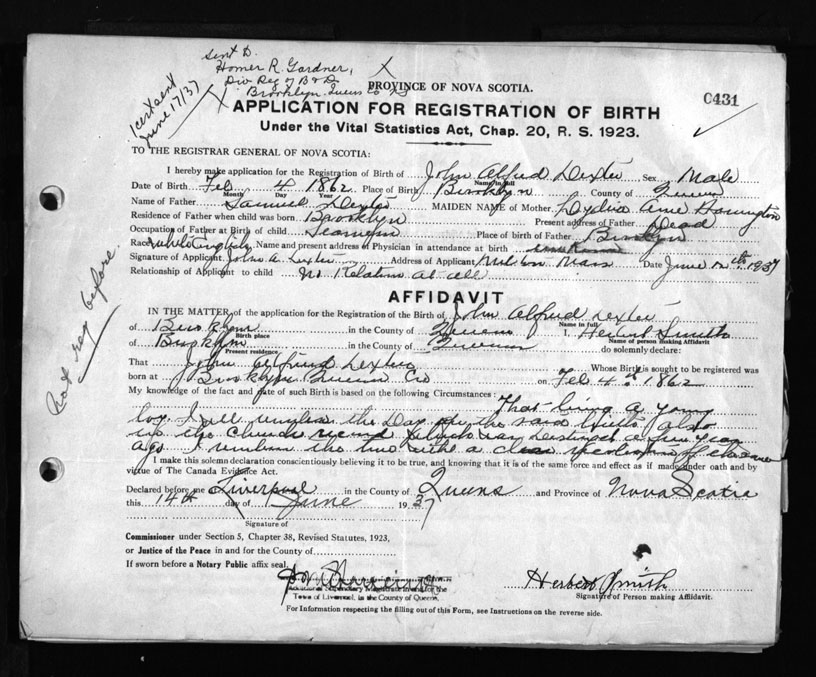 Sent to
Homer R. Gardner,
Div Reg of B & D
Brooklyn Queens Co NS
1 cert sent
June 17/37
X
X
PROVINCE OF NOVA SCOTIA.
0431
APPLICATION FOR REGISTRATION OF BIRTH
Under the Vital Statistics Act, Chap. 20, R. S. 1923.
TO THE REGISTRAR GENERAL OF NOVA SCOTIA:
I hereby make application for the Registration of Birth of John Alfred Dexter Sex Male
Name in full
Date of Birth Feb 4 1862 Place of Birth Brooklyn County of Queens
Month Day Year
Name of Father Samuel Dexter MAIDEN NAME of Mother Lydia Anne Harrington
Residence of Father when child was born Brooklyn Present address of Father Dead
Occupation of Father at Birth of child Seaman Place of birth of Father Brooklyn
Race White English Name and present address of Physician in attendance at birth
Signature of Applicant John A. Dexter Address of Applicant Milton Mass Date June 12th 1937
Relationship of Applicant to child No Relation at all
Not reg before.
AFFIDAVIT
IN THE MATTER of the application for the Registration of the Birth of John Alfred Dexter
Name in full
of Brooklyn in the County of Queens I, Herbert Smith
Birth place Name of person making Affidavit
of Brooklyn in the County of Queens do solemnly declare:
Present residence
That John Alfred Dexter Whose Birth is sought to be registered was
born at Brooklyn Queens Co on Feb 4th 1862
My knowledge of the fact and date of such Birth is based on the following Circumstances: That being a young
boy I the Day of the said birth also
in the Church record which was Destroyed a few years
ago I the time with a clear
I make this solemn declaration conscientiously believing it to be true, and knowing that it is of the same force and effect as if made under oath and by
virtue of The Canada Evidence Act.
Declared before me Liverpool in the County of Queens and Province of Nova Scotia
this 14th day of June 1937
Signature of
Commissioner under Section 5, Chapter 38, Revised Statutes, 1923,
or Justice of the Peace in and for the County of
If sworn before a Notary Public affix seal.
Additional Stipendiary Magistrate in and for the
Town of Liverpool, in the County of Queens.
Herbert Smith
Signature of Person making Affidavit.
For Information respecting the filling out of this Form, see Instructions on the reverse side.